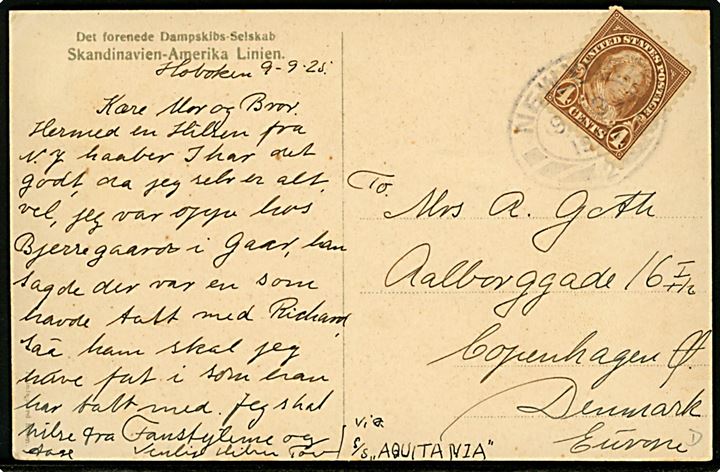 Det forenede Dampskibs-Selskab
Skandinavien-Amerika Linien.
Hoboken 9-9-25.
Kære Mor og Bror.
Hermed en Hilsen fra
N.Y. haaber I har det
godt, da jeg selv er alt
vel, jeg var oppe hos
Bjerregaards i Gaar, han
sagde der var en som
havde talt med Richard,
saa ham skal jeg
have fat i som han
har talt med. Jeg skal
hilse fra og
NEW
4 CENTS 4
UNITED STATES POSTAGE
To.
Mrs A. Goth
Aalborggade 16
Copenhagen Ø.
Denmark
Europe
via
s/s "AQUITANIA"